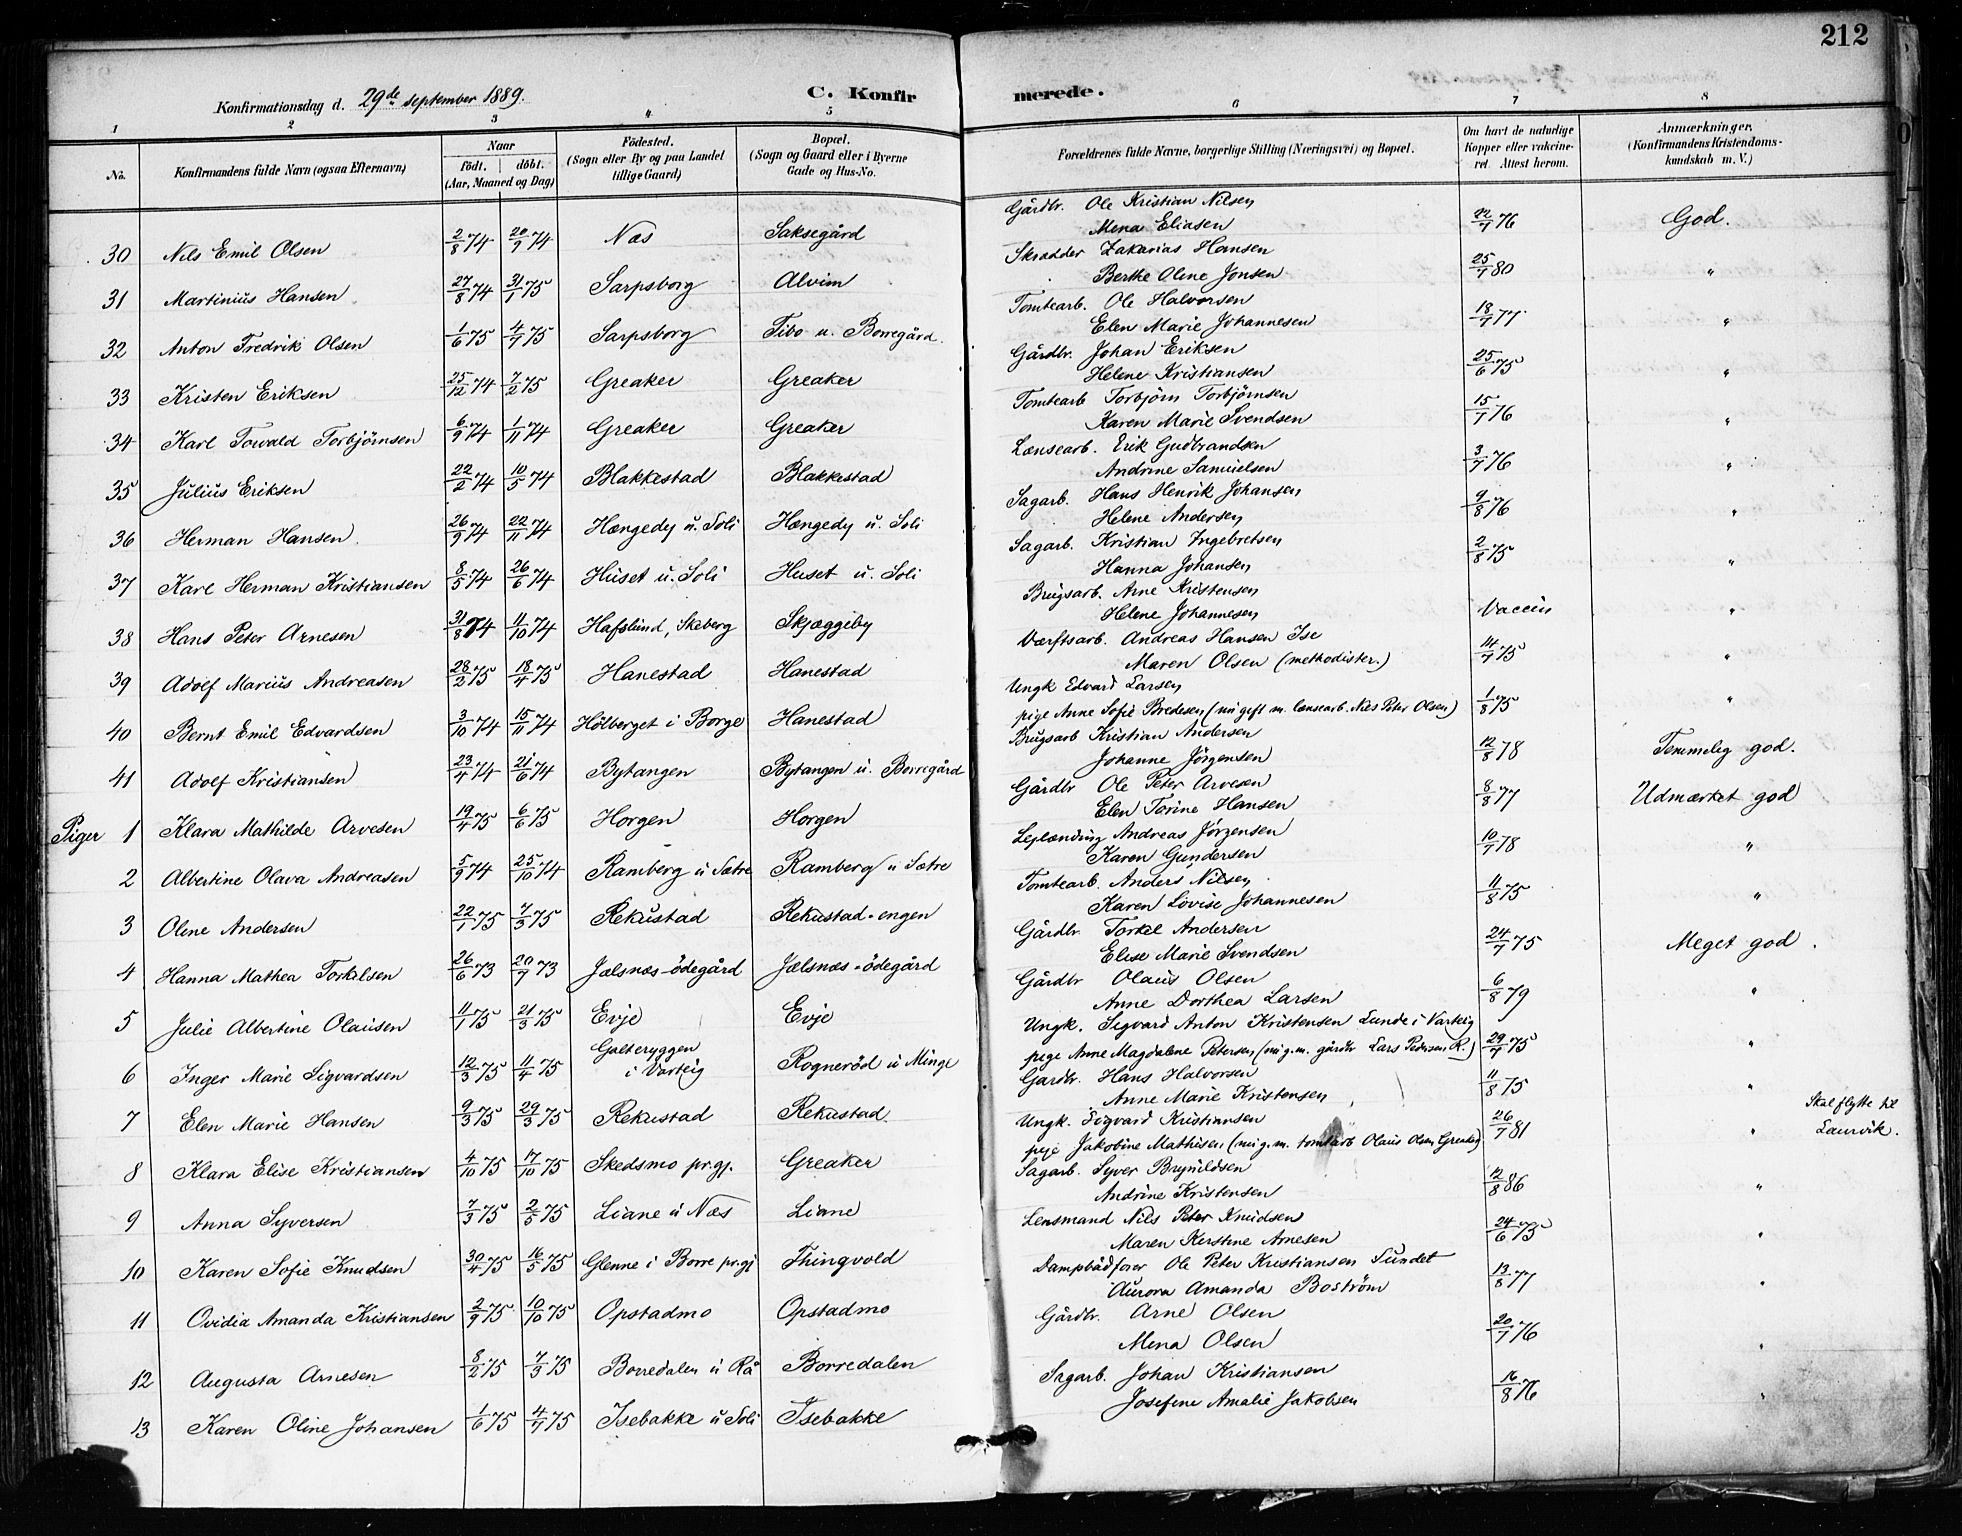 212
Konfirmationsdag d. 29de september 1889. C. Konfirmerede.
1 2 3 4 5 6 7 8
No. Konfirmandens fulde Navn (ogsaa Efternavn) Naar født. døbt. (Aar, Maaned og Dag) Födested. (Sogn eller By og paa Landet tillige Gaard) Bopæl. (Sogn og Gaard eller i Byerne Gade og Hus-No. Forældrenes fulde Navne, borgerlige Stilling (Næringsvei) og Bopæl. Om havt de naturlige Kopper eller vakcineret. Attest herom. Anmærkninger. (Konfirmandens Kristendomskundskab m. V.)
30 Nils Emil Olsen 2/8 74 20/9 74 Næs Saksegård Gårdbr. Ole Kristian Nilsen 22/7 76 God.
Mena Eliasen
31 Martinius Hansen 27/8 74 31/1 75 Sarpsborg Alvim Skrædder Zakarias Hansen 25/7 80 "
Berthe Oline Jonsen
32 Anton Fredrik Olsen 1/6 75 4/7 75 Sarpsborg Tibo u. Borregård. Tomtearb. Ole Halvorsen 18/7 77 "
Elen Marie Johannesen
33 Kristen Eriksen 25/12 74 7/2 75 Greaker Greaker Gårdbr. Johan Eriksen 25/6 75 "
Helene Kristiansen
34 Karl Towald Torbjörnsen 6/9 74 1/11 74 Greaker Greaker Tomtearb Torbjörn Torbjörnsen 15/7 76 "
Karen Marie Svendsen
35 Julius Eriksen 22/2 74 10/5 74 Blakkestad Blakkestad Lænsearb. Erik Gudbrandsen 3/7 76 "
Andrine Samuelsen
36 Herman Hansen. 26/9 74 22/11 74 Hængedy u. Soli Hængedy u. Soli Sagarb. Hans Henrik Johansen 9/8 76 "
Helene Andersen
37 Karl Herman Kristiansen 8/5 74 26/6 74 Huset u. Soli Huset u. Soli Sagarb. Kristian Ingebretsen 2/8 75 "
Hanna Johansen
38 Hans Peter Arnesen 31/8 74 11/10 74 Hafslund, Skeberg Skjæggeby Brugsarb. Arne Kristensen Vaccin "
Helene Johannesen
39 Adolf Marius Andreasen 28/2 75 18/4 75 Hanestad Hanestad Værftsarb. Andreas Hansen Ise 14/7 75 "
Maren Olsen (methodister.)
40 Bernt Emil Edvardsen 3/10 74 15/11 74 Hölberget i Borge Hanestad Ungk Edvard Larsen 1/8 75 "
pige Anne Sofie Bredesen (nu gift m. lænsearb. Nils Peter Olsen)
41 Adolf Kristiansen 23/4 74 21/6 74 Bytangen Bytangen u. Borregård Brugsarb Kristian Andersen 12/8 78 Temmelig god.
Johanne Jörgensen
Piger 1 Klara Mathilde Arvesen 19/4 75 6/6 75 Horgen Horgen Gårdbr Ole Peter Arvesen 8/8 77 Udmærket god
Elen Torine Hansen
2 Albertine Olava Andreasen 5/9 74 25/10 74 Ramberg u Sætre Ramberg u Sætre Leilænding Andreas Jörgensen 10/7 78 "
Karen Gundersen
3 Oline Andersen 22/1 75 7/3 75 Rekustad Rekustad-engen Tomtearb. Anders Nilsen 11/8 75 "
Karen Lovise Johannesen
4 Hanna Mathea Torkelsen 26/6 73 20/7 73 Jælsnæs-ödegård Jælsnæs-ödegård Gårdbr. Torkel Andersen 24/7 75 Meget god.
Elise Marie Svendsen
5 Julie Albertine Olausen 11/1 75 21/3 75 Evje Evje Gårdbr Olaus Olsen 6/8 79 "
Anne Dorthea Larsen
6 Inger Marie Sigvardsen 12/3 75 11/4 75 Galteryggen i Varteig Rogneröd u Minge Ungk. Sigvard Anton Kristensen Lunde i Varteig 29/7 75 "
pige Anne Magdalene Petersen (nu g. m. gårdbr Lars Pedersen R.)
7 Elen Marie Hansen 9/3 75 29/3 75 Rekustad Rekustad Gårdbr. Hans Halvorsen 11/8 75 "
Anne Marie Kristensen
8 Klara Elise Kristiansen 4/10 75 17/10 75 Skedsmo pr.gj. Greaker Ungk. Sigvard Kristiansen 26/7 81 " Skal flytte til Laurvik.
pige Jakobine Mathisen (nu g. m. tomtarb Olaus Olsen Greaker)
9 Anna Syversen 7/3 75 2/5 75 Liane u Næs Liane Sagarb. Syver Brynildsen 12/8 86 "
Andrine Kristensen
10 Karen Sofie Knudsen 30/4 75 16/5 75 Glenne i Borre pr.gj Thingvold Lensmand Nils Peter Knudsen 24/6 75 "
Maren Kerstine Arnesen
11 Ovidia Amanda Kristiansen 2/9 75 10/10 75 Opstadmo Opstadmo Dampbådförer Ole Peter Kristiansen Sundet 13/8 77 "
Aurora Amanda Boström
12 Augusta Arnesen 8/2 75 7/3 75 Borredalen u Rå Borredalen Gårdbr. Arne Olsen 20/7 76 "
Mena Olsen
13 Karen Oline Johansen 1/6 75 4/7 75 Isebakke u Soli Isebakke Sagarb. Johan Kristiansen 16/8 76 "
Josefine Amalie Jakobsen